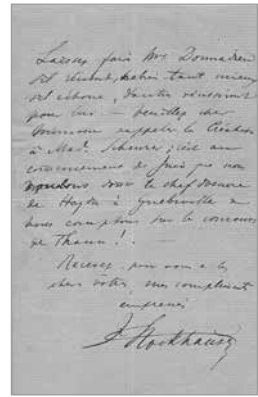 Laissez faire Mr Donnadieu
s'il réussit, tant mieux
s'il échoue, d'autres réussiront
pour lui. — Veuillez me
rappeler la Création
à Mad. Scheurer; c'est au
commencement de Juin que nous
voudrions donner le chef d'oeuvre
de Haydn à Guebwiller et
nous comptons sur le concours
de Thann!
Recevez pour vous et les
chers vôtres, mes compliments
empressés
J. Stockhausen